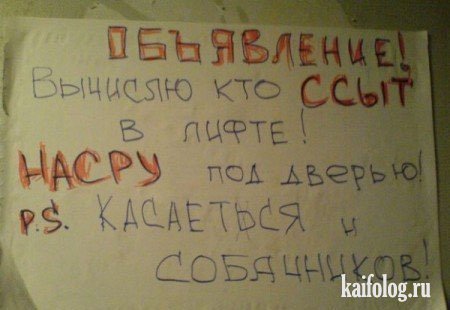 ОБЪЯВЛЕНИЕ!
ВЫЧИСЛЮ КТО ССЫТ
В ЛИФТЕ!
НАСРУ ПОД ДВЕРЬЮ!
P.S. КАСАЕТЬСЯ И
СОБАЧНИКОВ!
kaifolog.ru